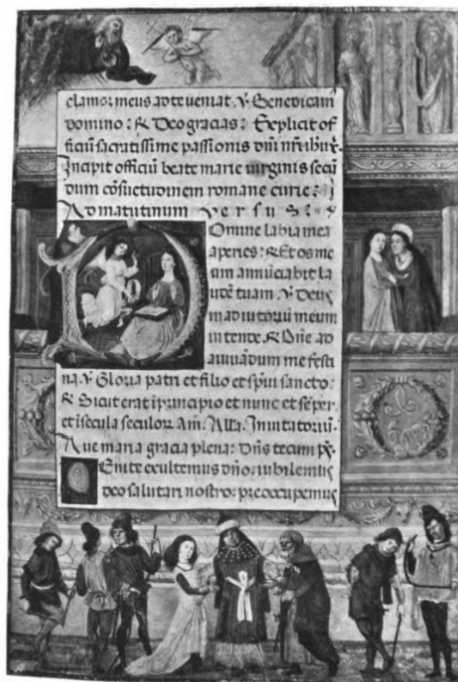 clamor meus ad te veniat. ℣ Benedicam
domino: ℟ Deo gracias: Explicit of
ficiū sacratissime passionis dn̄i nr̄i
Incipit officiū beate marie virginis secū
dum cōsuetudinem romane curie:
Ad matutinum versus:
Domine labia mea
aperies: ℟ Et os me
um annūciabit la
udē tuam. ℣ Deus
in adiutoriū meum
intende ℟ Dn̄e ad
aiuuādum me festi
na. ℣ Gloria patri et filio et sp̄ui sancto:
℟ Sicut erat ī principio et nunc et sēper
et ī secula seculoꝝ. Am̄. Inuitatoriū.
Aue maria gracia plena: Dn̄s tecum
Uenite exultemus dn̄o: iubilemus
deo salutari nostro: preoccupemus